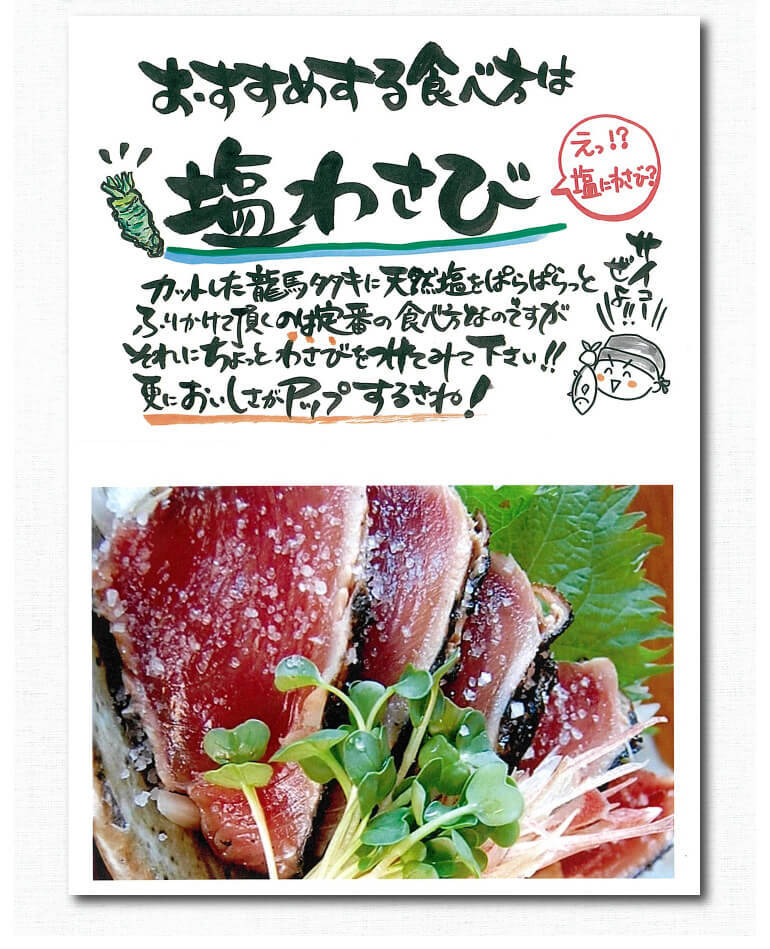 おすすめする食べ方は
塩わさび
えっ!?
塩にわさび?
カットした龍馬タタキに天然塩をぱらぱらっと
ふりかけて頂くのは定番の食べ方なのですが
それにちょっとわさびをつけてみて下さい!!
更においしさがアップするきね!
サイコー
ぜよ!!